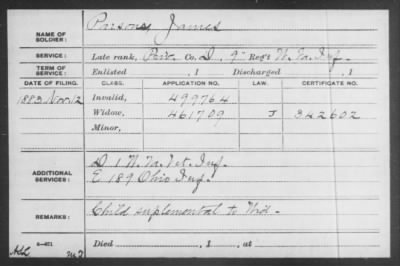 NAME OF SOLDIER: Parsons, James
SERVICE: Late rank, Priv. Co. D, 9" Reg't W. Va. Inf.
TERM OF SERVICE: Enlisted , 1 Discharged , 1
DATE OF FILING. CLASS. APPLICATION NO. LAW. CERTIFICATE NO.
1883 Nov. 12 Invalid, 499764
Widow, 461709 J 342602
Minor,
ADDITIONAL SERVICES: D 1 W. Va. Vet. Inf.
E. 189 Ohio Inf.
REMARKS: Child suplemental to Wid.
Died , 1 , at